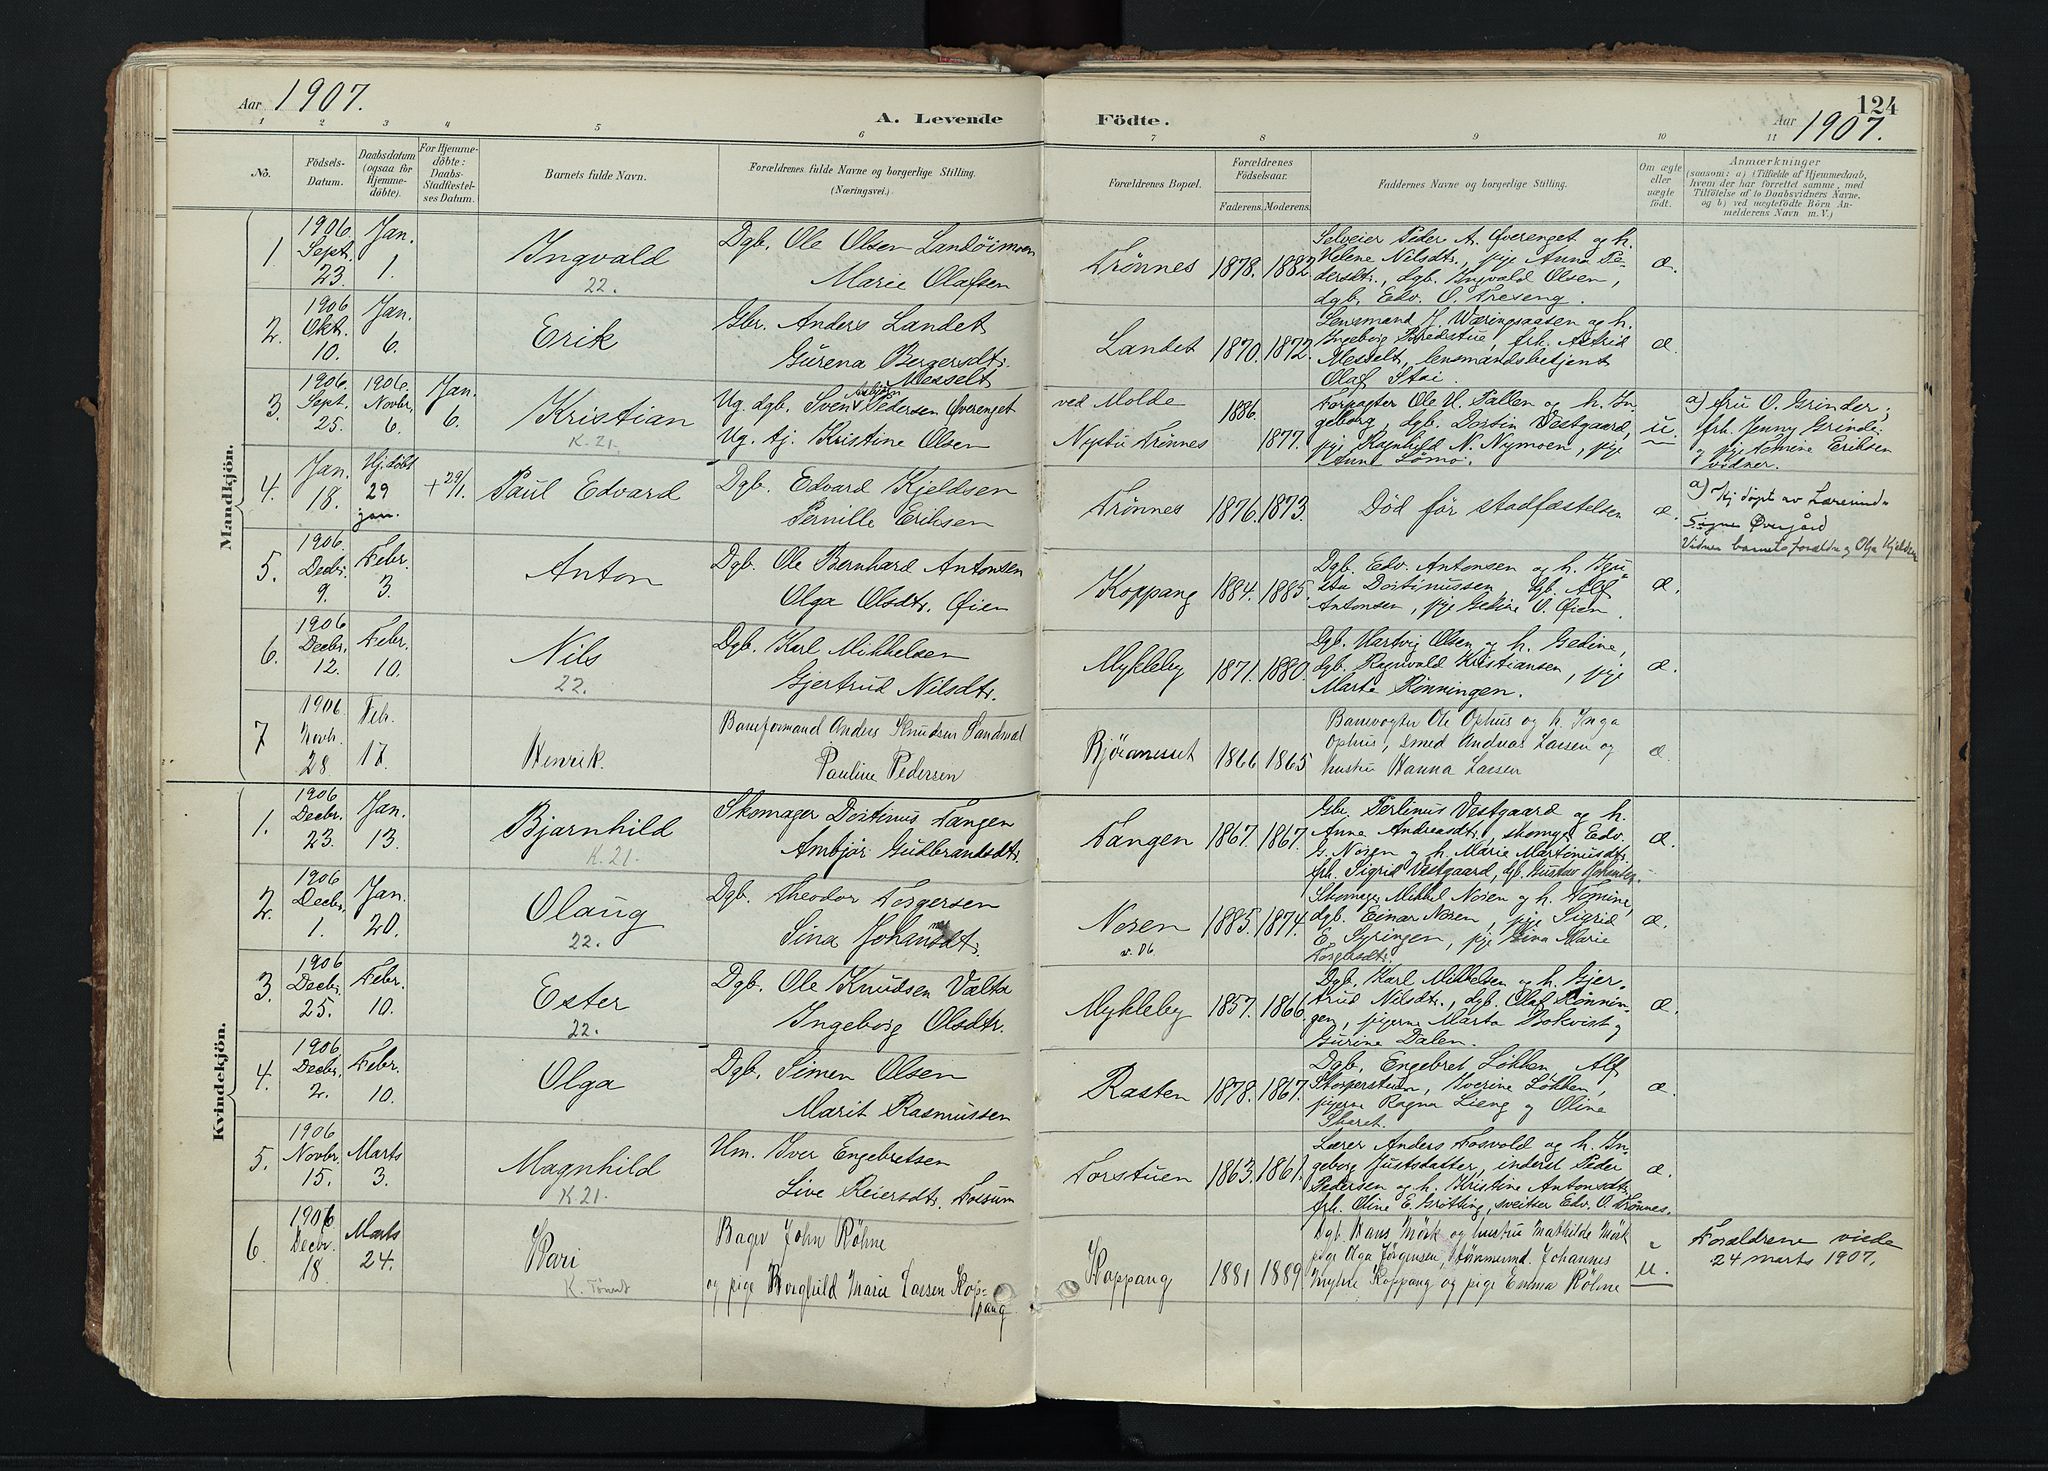 Aar 1907.
A. Levende Födte.
124
Aar 1907.
1 2 3 4 5 6 7 8 9 10 11
No.
Födsels-Datum.
Daabsdatum (ogsaa for Hjemme-döbte).
For Hjemme-döbte: Daabs-Stadfæstel-ses Datum.
Barnets fulde Navn.
Forældrenes fulde Navne og borgerlige Stilling.
(Næringsvei.)
Forældrenes Bopæl.
Forældrenes Födselsaar.
Faderens. Moderens.
Faddernes Navne og borgerlige Stilling.
Om ægte eller uægte födt.
Anmærkninger
(saasom: a) i Tilfælde af Hjemmedaab,
hvem der har forrettet samme, med
Tilföielse af to Daabsvidners Navne,
og b) ved uægtefödte Börn An-
melderens Navn m. V.)
Mandkjön.
1. 1906 Sept. 23. Jan. 1. Ingvald 22.
Dgb. Ole Olsen Landöimoen
Marie Olafsen
Trønnes 1878. 1882.
Selveier Peder A. Øverenget og h.
Helene Nilsdtr., pige Anna Pe-
dersdtr., dgb. Ingvald Olsen,
dgb. Edv. O. Treseng.
æ.
2. 1906 Okt. 10. Jan. 6. Erik
Gbr. Anders Landet
Gurena Bergersdtr. Messelt
Landet 1870. 1872.
Lensmand J. Wæringsaasen og h.
Ingeborg Bredistue, frk. Astrid
Messelt, lensmandsbetjent
Olaf Stai.
æ.
3. 1906 Sept. 25. 1906. Novbr. 6. Jan. 6. Kristian K. 21.
Ug. dgb. Sven Asbjørn Pedersen Øverenget
Ug. tj. Kristine Olsen
ved Molde 1886.
Nystu Trønnes 1877.
Forpagter Ole H. Pallen og h. In-
geborg, dgb. Dortin Vestgaard,
pige Ragnhild N. Nymoen, pige
Anne Lömo.
u.
a) fru O. Grinder,
frk. Jenny Grinde-
og pige Tomine Eriksen
vidner.
4. Jan. 18. Hj.döbt 29 jan. + 29/1. Paul Edvard
Dgb. Edvard Kjeldsen
Pernille Eriksen
Trønnes 1876. 1873.
Död før stadfæstelsen
æ.
a) Hj døpt av Lærerind-
Signe Øvergård
Vidner barnets forældre og Olga Kjeldsen
5. 1906 Decbr. 9. Febr. 3. Anton
Dgb. Ole Bernhard Antonsen
Olga Olsdtr. Øien
Koppang 1884. 1885.
Dgb. Edv. Antonsen og h. Gu
sta Dortinussen, Gb. Alf
Antonsen, pige Gedine O. Øien.
æ.
6. 1906 Decbr. 12. Febr. 10. Nils 22.
Dgb. Karl Mikkelsen
Gjertrud Nilsdtr.
Mykleby 1871. 1880.
Dgb. Hartvig Olsen og h. Gedine,
dgb. Ragnvald Kristiansen, pige
Marte Rønningen.
æ.
7 1906 Novb. 28 Febr. 17. Henrik.
Baneformand Anders Knudsen Sandmæl
Pauline Pedersen
Björanesset 1866 1865
Banevogter Ole Ophus og h. Inga
Ophus, smed Andreas Larsen og
hustru Hanna Larsen
æ.
Kvindekjön.
1. 1906 Decbr. 23. Jan. 13. Bjarnhild K. 21.
Skomager Dortinus Tangen
Ambjør Gudbrandsdtr.
Tangen 1867. 1867.
Gbr. Perlinus Vestgaard og h.
Anne Andreasdtr., skomgr. Edv.
G. Noren og h. Marie Martinusdtr.
frk. Sigrid Vestgaard, dgb. Gustav Johansen.
æ.
2. 1906 Decbr. 1. Jan. 20. Olaug 22.
Dgb. Theodor Torgersen
Sina Johansdtr.
Noren 1885. 1874.
Skomager Mikkel Noren og h. Tomine,
dgb. Einar Noren, pige Sigrid
E. Syringen, pige Gina Marie
Torgersdtr.
æ.
3. 1906 Decbr. 25. Febr. 10. Ester 22.
Dgb. Ole Knudsen Valta
Ingeborg Olsdtr.
Mykleby 1857. 1866.
Dgb. Karl Mikkelsen og h. Gjer-
trud Nilsdtr., dgb. Olaf Rönnin-
gen, pigerne Marta Bokvist og
Gurine Dalen.
æ.
4. 1906 Decbr. 2. Febr. 10. Olga
Dgb. Simen Olsen
Marit Rasmussen
Rasten 1878. 1867.
Dgb. Engebret Løkken, Alf
Storperstuen, Iverine Løkken,
pigerne Ragna Lieng og Oline
Skaret.
æ
5. 1906 Novbr. 15. Marts 3. Magnhild K 21.
Hm. Iver Engebretsen
Live Reiersdtr. Fossum
Torstuen 1863. 1861.
Lærer Anders Fosvold og h. In-
geborg Justsdatter, inderst Peder
Pedersen og h. Kristine Antonsdtr.
frk. Oline E. Grötting, sveitser Edv. O. Trönnes.
æ.
6. 1906 Decbr. 18 Marts 24. Kari K. Tönset
Bager John Röhne
og pige Borghild Marie Larsen Kop-
pang
Koppang 1881 1889
Dgb. Hans Mörk og hustru Mathilde Mörk
pige Olga Jörgensen, Johannes
Myhre Koppang og pige Emma Röhne
u.
Forældrene viede
24 marts 1907.